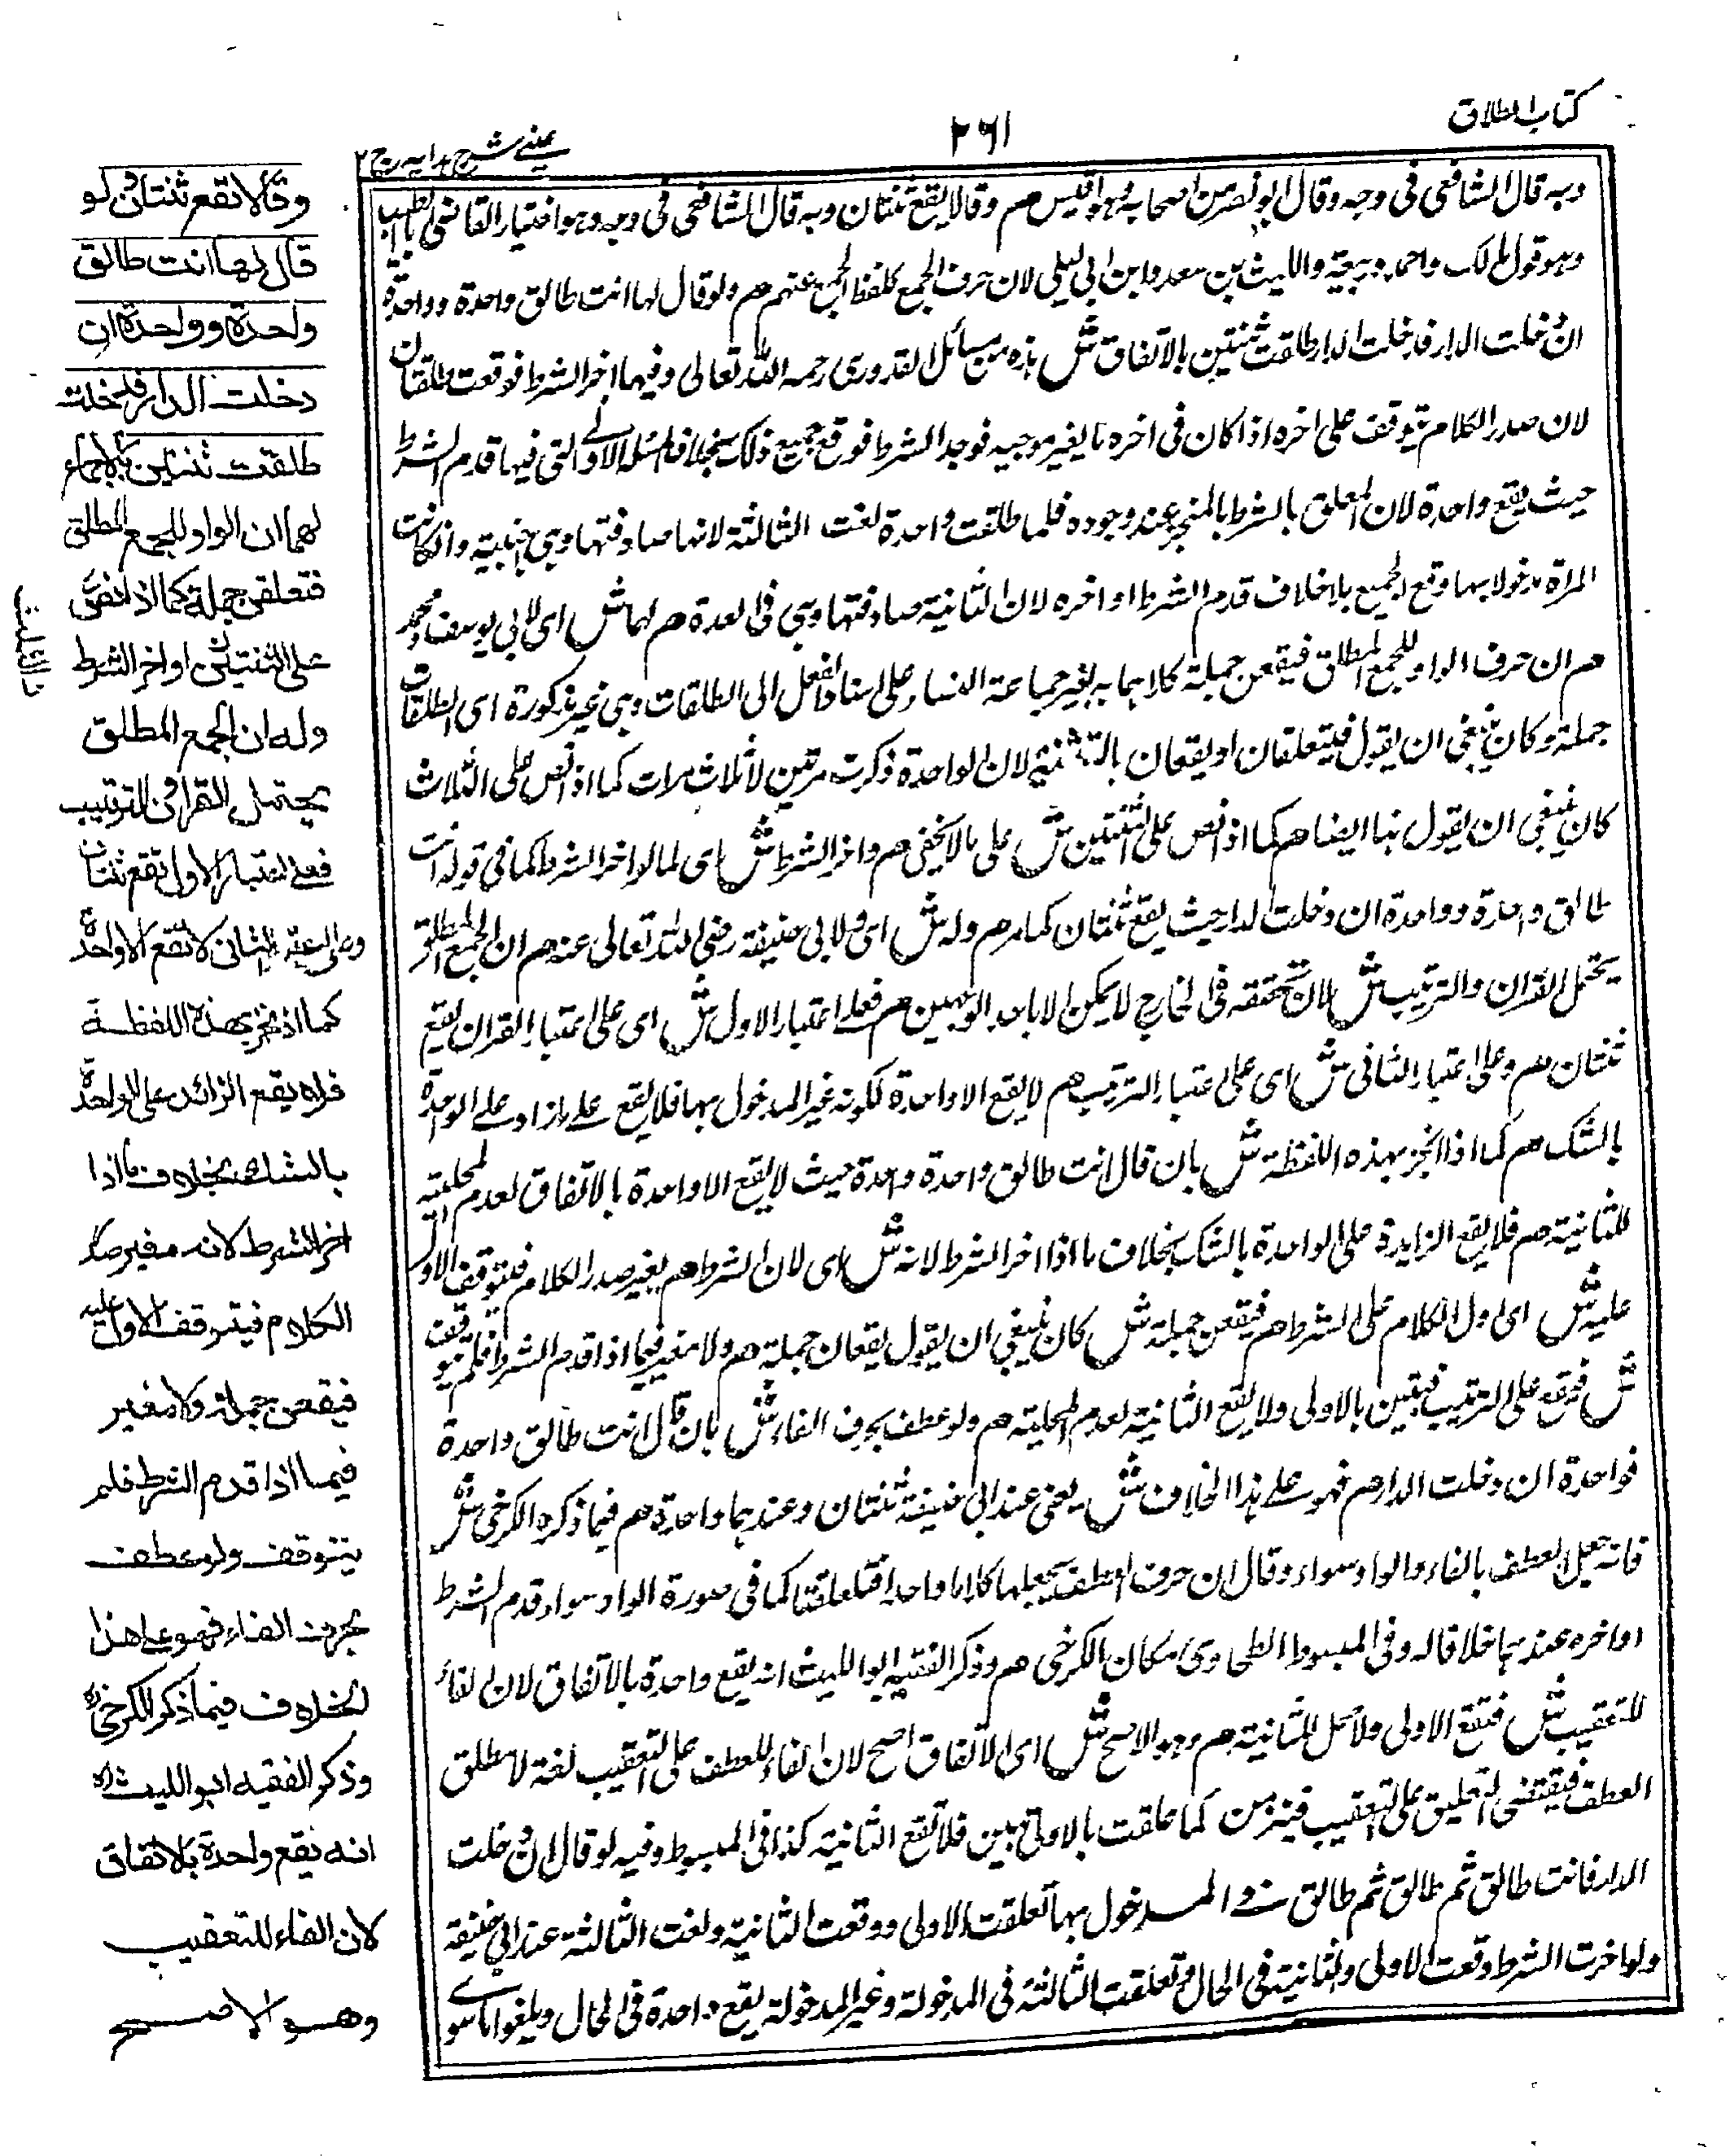 كتاب الطلاق
٢٦١
عيني شرح هدايه ج ٢
وبه قال الشافعي في وجه وقال ابو نصر من اصحابه وهو اقيس هم وقالا يقع ثنتان وبه قال الشافعي في وجه وهو اختيار القاضي ابي الطيب
وهو قول مالك واحمد وربيعة والليث بن سعد وابن ابي ليلى لان حرف الجمع كلفظ الجمع عنهم هم ولو قال لها انت طالق واحدة وواحدة
ان دخلت الدار فدخلت الدار طلقت ثنتين بالاتفاق ش هذه من مسائل القدوري رحمه الله تعالى وفيها اخر الشرط فوقعت طلقتان
لان صدر الكلام يتوقف على اخره اذا كان في اخره ما يغير موجبه فوجد الشرط فوقع جميع ذلك بخلاف المسئلة الاولى التي فيها قدم الشرط
حيث يقع واحدة لان المعلق بالشرط كالمنجز عند وجوده فلما طلقت واحدة لغت الثالثة لانها صادفتها وهي اجنبية وان كانت
المراة مدخولا بها وقع الجميع بلا خلاف قدم الشرط او اخره لان الثانية صادفتها وهي في العدة هم لهما ش اي لابي يوسف ومحمد
هم ان حرف الواو للجمع المطلق فيقعن جملة كلاهما به بغير جماعة النساء على اسناد الفعل الى الطلقات وهي غير مذكورة اي الطلقات
جملة وكان ينبغي ان يقول فيتعلقان او يقعان بالتثنية لان الواحدة ذكرت مرتين لا ثلاث مرات كما اذا نص على الثلاث
كان ينبغي ان يقول هنا ايضا هم كما اذا نص على الثنتين ش على ما لا يخفى هم واخر الشرط ش اي كما لو اخر الشرط كما في قوله انت
طالق واحدة وواحدة ان دخلت الدار حيث يقع ثنتان كما مر هم وله ش اي ولابي حنيفة رضي الله تعالى عنه هم ان الجمع المطلق
يحتمل القران والترتيب ش لان تحققه في الخارج لا يمكن الا باحد الوجهين هم فعلى اعتبار الاول ش اي على اعتبار القران يقع
ثنتان هم وعلى اعتبار الثاني ش اي على اعتبار الترتيب هم لا يقع الا واحدة لكونه غير المدخول بها فلا يقع على ما زاد على الواحدة
بالشك هم كما اذا انجز بهذه اللفظة ش بان قال انت طالق واحدة وواحدة حيث لا يقع الا واحدة بالاتفاق لعدم المحلية
للثانية هم فلا يقع الزايدة على الواحدة بالشك بخلاف ما اذا اخر الشرط لانه ش اي لان الشرط هم يغير صدر الكلام فيتوقف الاول
عليه ش اي اول الكلام على الشرط هم فيقعن جملة ش كان ينبغي ان يقول يقعان جملة هم ولا مغير فيما اذا قدم الشرط فلم يتوقف
ش فيقع على الترتيب فتبين بالاولى ولا يقع الثانية لعدم المحلية هم ولو عطف بحرف الفاء ش بان قال انت طالق واحدة
فواحدة ان دخلت الدار هم فهو على هذا الخلاف ش يعني عند ابي حنيفة ثنتان وعندهما واحدة هم فيما ذكره الكرخي ش
فانه جعل العطف بالفاء والواو سواء وقال ان حرف العطف يجعلها كلاما واحدا فتعلقتا كما في صورة الواو سواء قدم الشرط
او اخره عندهما خلافا له وفي المبسوط الطحاوي مكان الكرخي هم وذكر الفقيه ابو الليث انه يقع واحدة بالاتفاق لان الفاء
للتعقيب ش فتقع الاولى ولا محل للثانية هم وهو الاصح ش اي الاتفاق اصح لان الفاء للعطف على التعقيب لغة لا مطلق
العطف فيقتضي التعليق على التعقيب فينزلن كما علقت بالاولى تبين فلا تقع الثانية كذا في المبسوط وفيه لو قال ان دخلت
الدار فانت طالق ثم طالق ثم طالق في المدخول بها تعلقت الاولى ووقعت الثانية ولغت الثالثة عند ابي حنيفة
ولو اخرت الشرط وقعت الاولى والثانية في الحال وتعلقت الثالثة في المدخولة وغير المدخولة يقع واحدة في الحال ويلغوا ما سوى
وقالا تقع ثنتان ولو
قال لها انت طالق
واحدة وواحدة ان
دخلت الدار فدخلت
طلقت ثنتين بالاجماع
لهما ان الواو للجمع المطلق
فتعلقن جملة كما اذا نص
على الثنتين او اخر الشرط
وله ان الجمع المطلق
يحتمل القران والترتيب
فعلى اعتبار الاول تقع ثنتان
وعلى اعتبار الثاني لا تقع الا واحدة
كما اذا نجز بهذه اللفظة
فلا يقع الزائد على الواحدة
بالشك بخلاف ما اذا
اخر الشرط لانه مغير صدر
الكلام فيتوقف الاول عليه
فيقعن جملة ولا مغير
فيما اذا قدم الشرط فلم
يتوقف ولو عطف
بحرف الفاء فهو على هذا
الخلاف فيما ذكر الكرخي
وذكر الفقيه ابو الليث
انه يقع واحدة بالاتفاق
لان الفاء للتعقيب
وهو الاصح